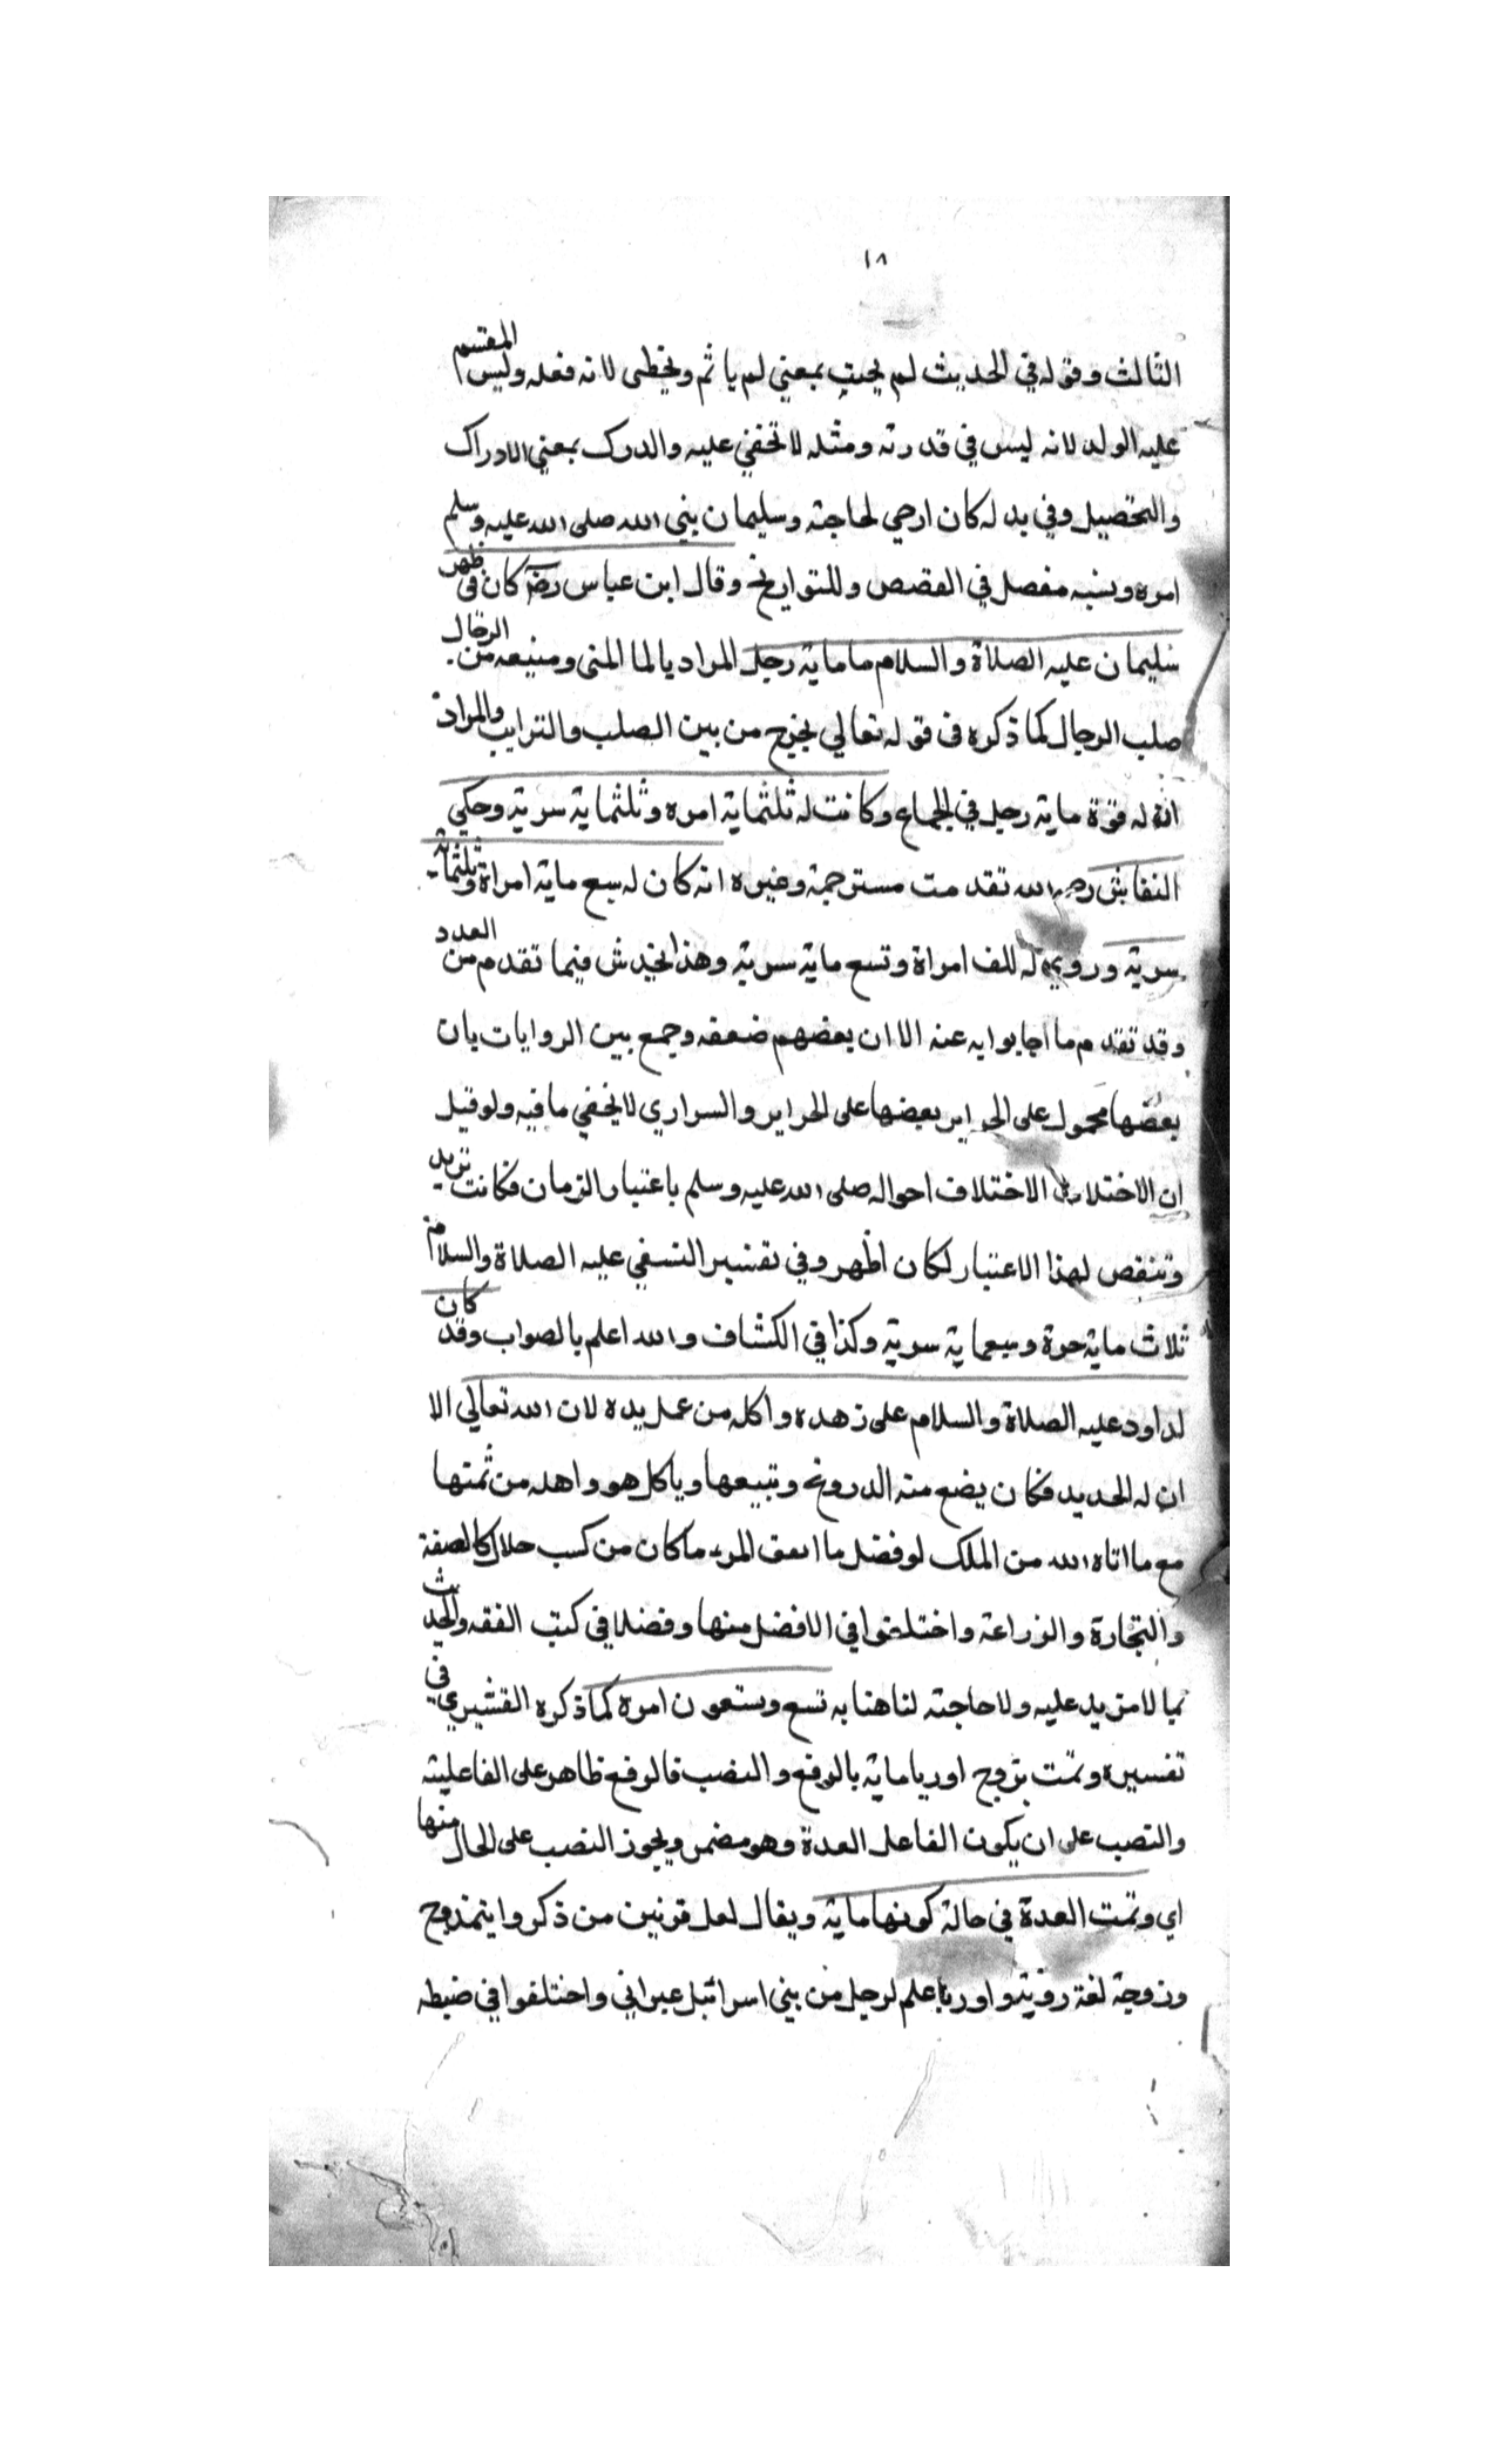 ١٨
الثالث وقوله في الحديث لم يحنث بمعني لم ياثم ويخطى لانه فعله وليس المقسم
عليه الولد لانه ليس في قدرته ومثله لا تخفي عليه والدرك بمعني الادراك
والتحصيل وفي يد له كان ارجي لحاجته وسليمان بني الله صلى الله عليه وسلم
امره ونسبه مفصل في القصص وللتواريخ وقال ابن عباس رضي كان في ظهر
سليمان عليه الصلاة والسلام ماماية رجل المراد يالما المنى ومنبعه من الرجال
صلب الرجال كما ذكره في قوله تعالي يخرج من بين الصلب والترايب والمراد
انه له قوة ماية رجل في الجماع وكانت له ثلثماية امره وثلثماية سرية وحكي
النقاش رحمه الله تقدمت مسترجمة وغيره انه كان له سبع ماية امراة وثلثماية
سرية وروي له للف امراة وتسع ماية سرية وهذا يخدش فيما تقدم من العدد
وقد تقدم ما اجابوا به عنه الا ان بعضهم ضعفه وجمع بين الروايات بان
بعضها محمول على الحراير بعضها على الحراير والسراري لا يخفي ما فيه ولو قيل
ان الاختلاف الاختلاف احواله صلى الله عليه وسلم باعتبار الزمان فكانت تزيد
وتنقص لهذا الاعتبار لكان اظهر وفي تفسير النسفي عليه الصلاة والسلام
ثلاث ماية حرة وسبعماية سرية وكذا في الكشاف والله اعلم بالصواب وقد كان
لداود عليه الصلاة والسلام على زهده واكله من عمل يده لان الله تعالي الا
ان له الحديد فكان يضع منه الدروع وتبيعها وياكل هو واهله من ثمنها
مع ما اتاه الله من الملك لو فضل ما المرء ما كان من كسب حلال كالصفة
والتجارة والزراعة واختلفوا في الافضل منها وفضلا في كتب الفقه والحديث
بما لا مزيد عليه ولا حاجته لنا هنا به تسع وستعون امره كما ذكره القشيري في
تفسيره وتمت بتزوج اوريا ماية بالرفع والنصب فالرفع ظاهر على الفاعلية
والنصب على ان يكون الفاعل العدة وهو مضمر ويجوز النصب على الحال منها
اي وتمت العدة في حالة كونها ماية ويقال لعل قرنين من ذكر وانثي زوج
وزوجة لغة واوريا علم لرجل من بني اسرائيل عبراني واختلفوا في ضبطه